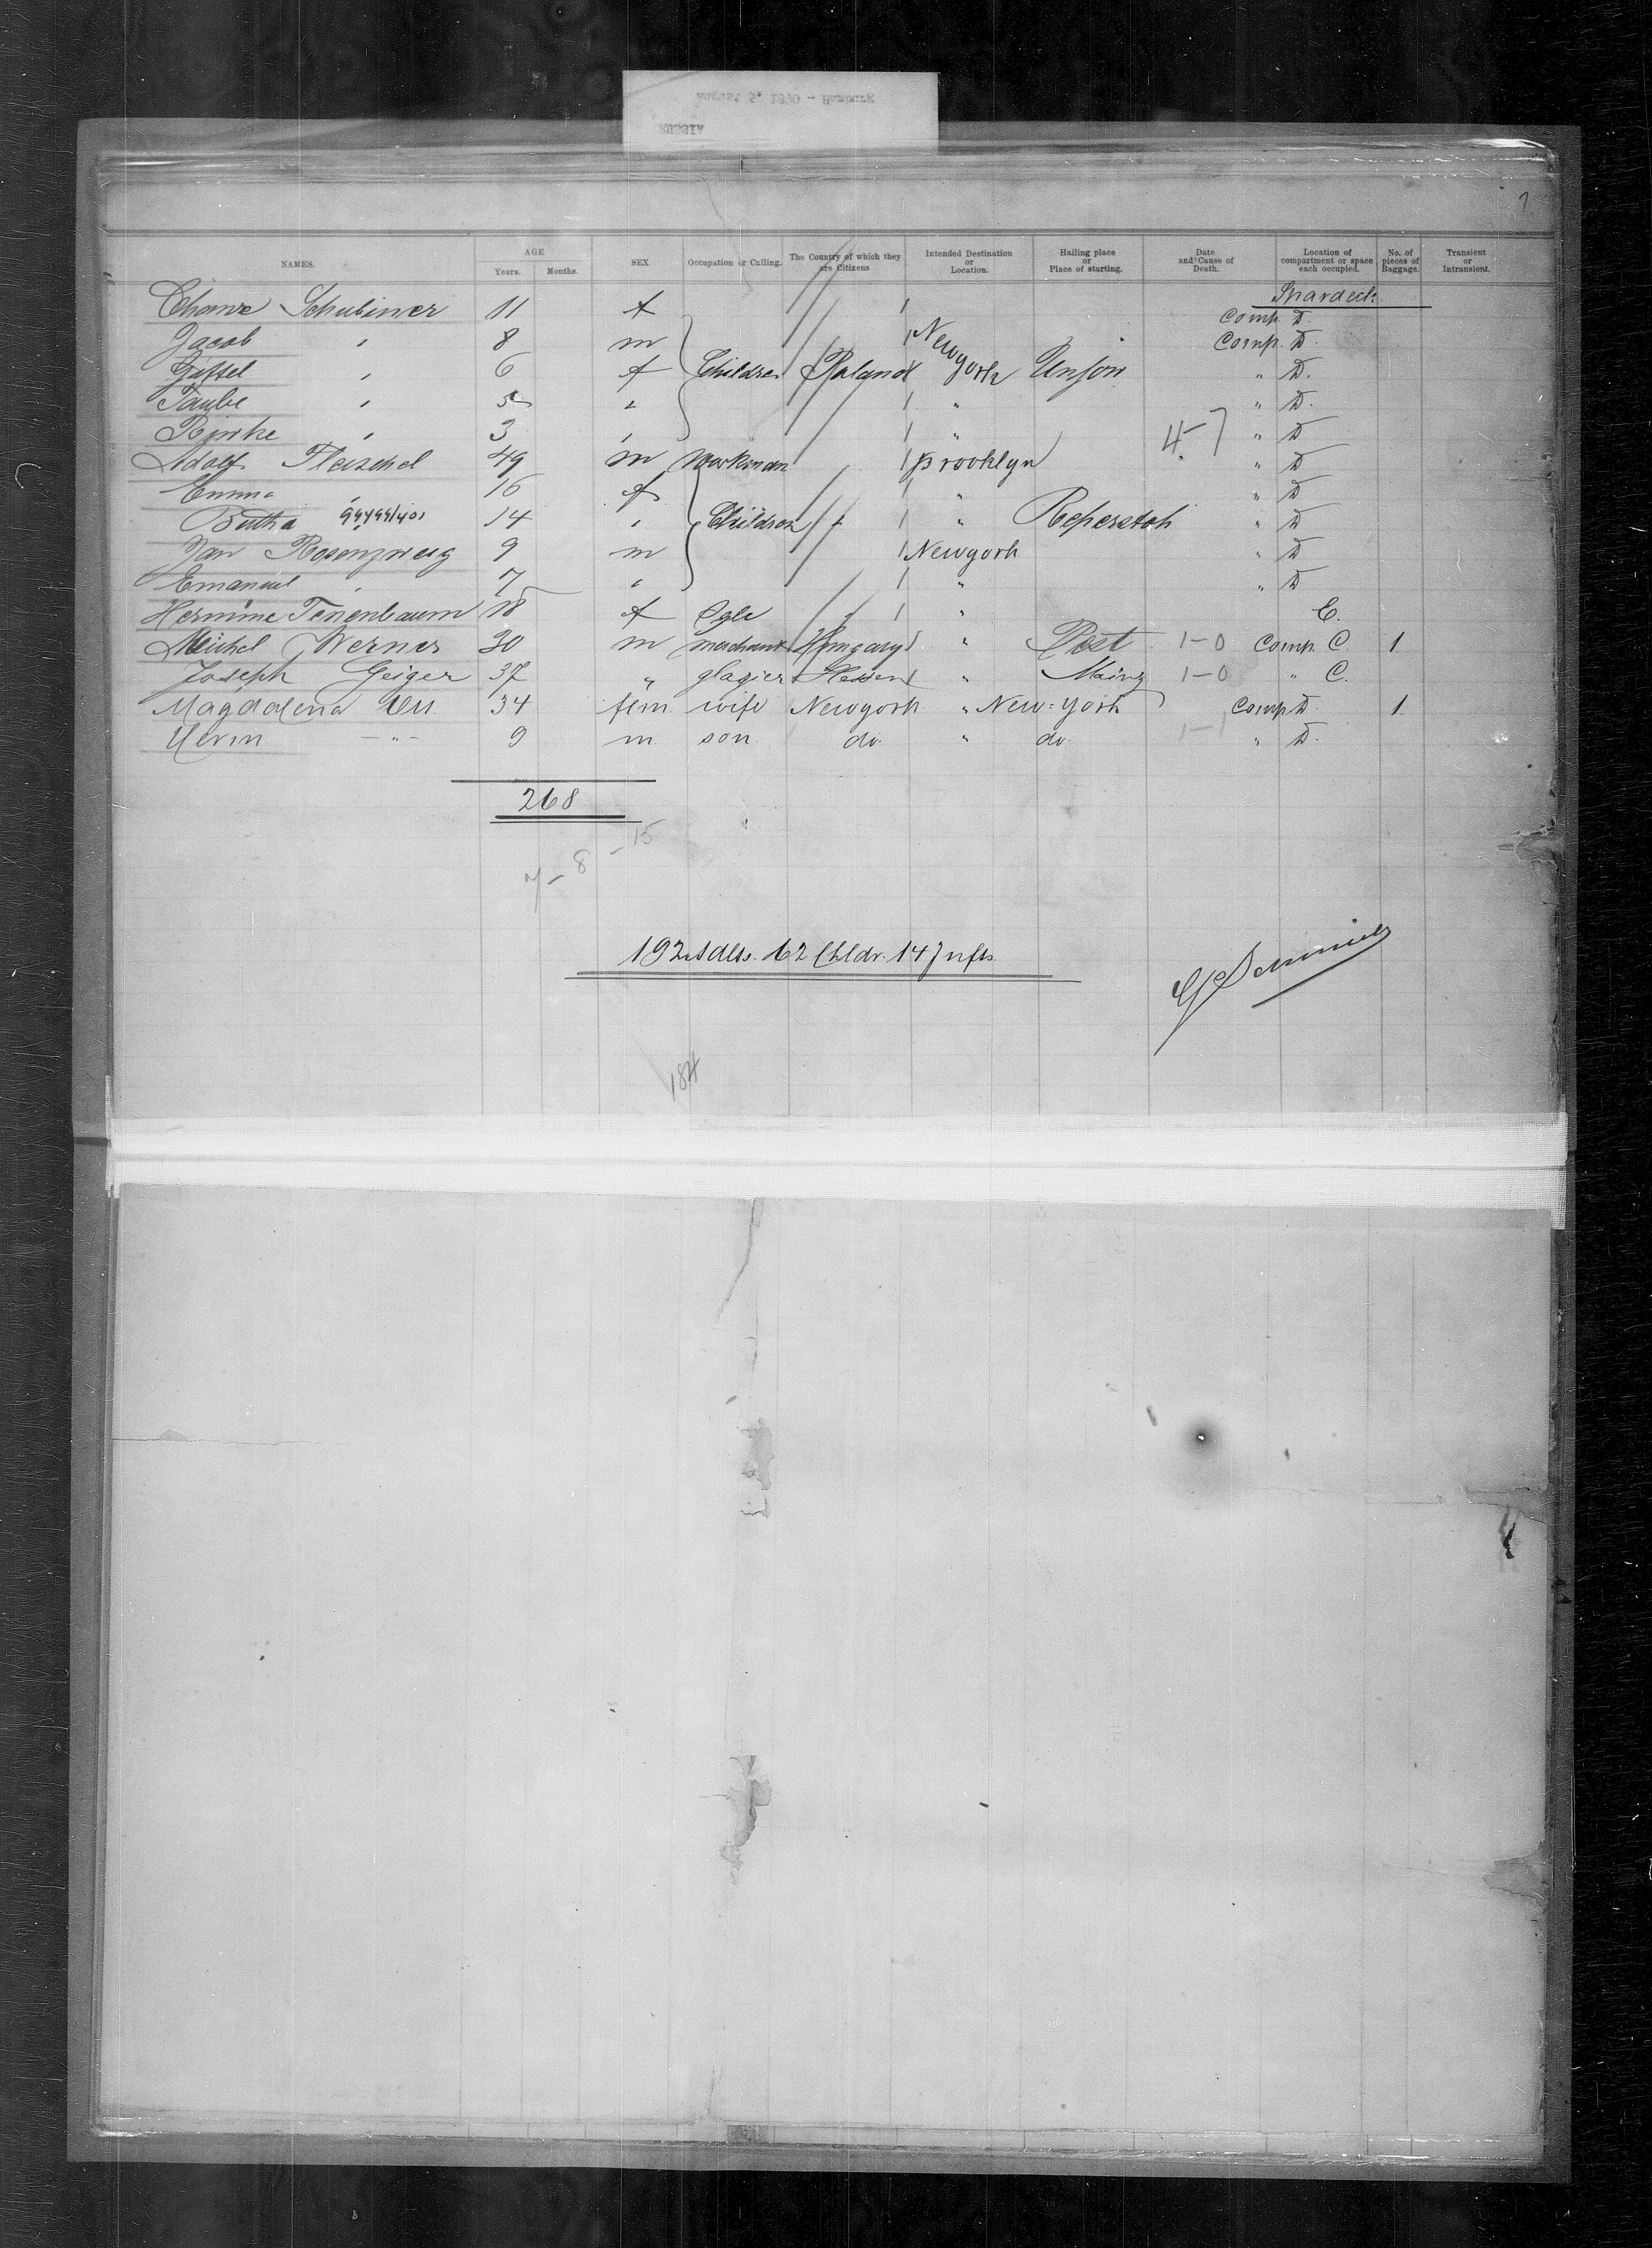 RUSSIA
August 5, 1890 - Hamburg
7
NAMES. AGE Years. Months. SEX Occupation or Calling. The Country of which they are Citizens Intended Destination or Location. Hailing place or Place of starting. Date and Cause of Death. Location of compartment or space each occupied. No. of pieces of Baggage. Transient or Intransient.
Schubiner 11 f Comp. D.
Jacob " 8 m Newyork Comp. D.
6 f Children Poland " D.
Taube " 5 " " " D.
" 3 " " 4-7 " D
Adolf Fleischel 49 m Workman Brooklyn " D
Emma " 16 f " D
Bertha 99499/401 14 " Children " " D
Jan Rosenzweig 9 m Newyork " D
Emanuel " 7 " " " D
Hermine Tenenbaum 18 f " C.
Michel Werner 30 m merchant Hungary " Pest 1-0 Comp. C. 1
Joseph Geiger 37 " glazier Hessen " Mainz 1-0 " C.
Magdalena 34 fem wife Newyork " New=York Comp D. 1
9 m son do " do. 1-1 " D.
268
7-8-15
192 Adlts. 62 Chldr. 14 Infts.
184